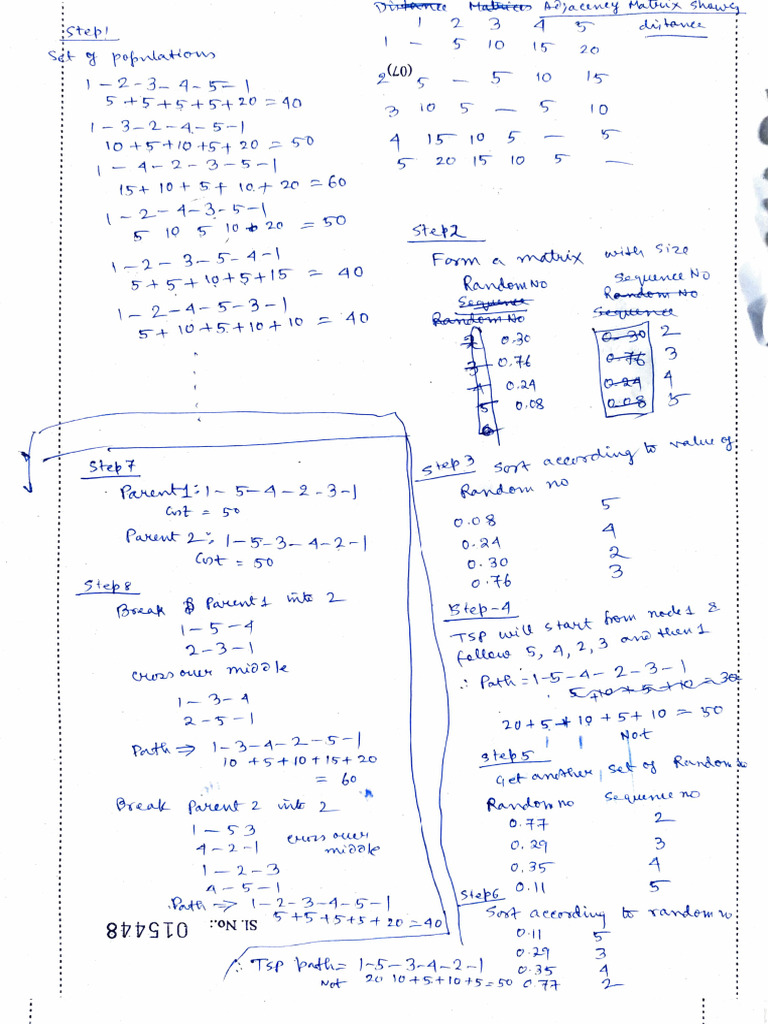 Step1
Set of populations
1-2-3-4-5-1
5+5+5+5+20=40
1-3-2-4-5-1
10+5+10+5+20=50
1-4-2-3-5-1
15+10+5+10+20=60
1-2-4-3-5-1
5 10 5 10+20=50
1-2-3-5-4-1
5+5+10+5+15=40
1-2-4-5-3-1
5+10+5+10+10=40
Distance Matrices Adjacency Matrix shows distance
1 2 3 4 5
1 - 5 10 15 20
2 (07) 5 - 5 10 15
3 10 5 - 5 10
4 15 10 5 - 5
5 20 15 10 5 -
Step2
Form a matrix with size
Random No Sequence No
Sequence Random No
Random No Sequence
2 0.30 0.30 2
3 0.76 0.76 3
4 0.24 0.24 4
5 0.08 0.08 5
6
Step3 Sort according to value of
Random no
0.08 5
0.24 4
0.30 2
0.76 3
Step-4
TSP will start from node 1 &
follow 5, 4, 2, 3 and then 1
∴ Path=1-5-4-2-3-1
5+10+5+10=30
20+5+10+5+10=50
Not
Step5
Get another set of Random no
Random no Sequence no
0.77 2
0.29 3
0.35 4
0.11 5
Step6
Sort according to random no
0.11 5
0.29 3
0.35 4
0.77 2
∴ TSP path= 1-5-3-4-2-1
Not 20 10+5+10+5=50
Step7
Parent1: 1-5-4-2-3-1
Cost = 50
Parent 2: 1-5-3-4-2-1
Cost = 50
Step8
Break Parent1 into 2
1-5-4
2-3-1
cross over middle
1-3-4
2-5-1
Path ⇒ 1-3-4-2-5-1
10+5+10+15+20
=60
Break Parent 2 into 2
1-5 3
4-2-1
cross over
middle
1-2-3
4-5-1
Path ⇒ 1-2-3-4-5-1
5+5+5+5+20=40
Sl. No.: 015448